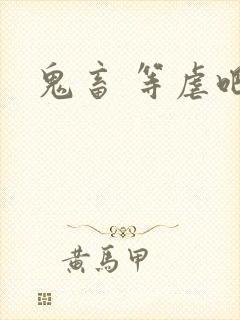 鬼畜 等虐吧
黄馬甲